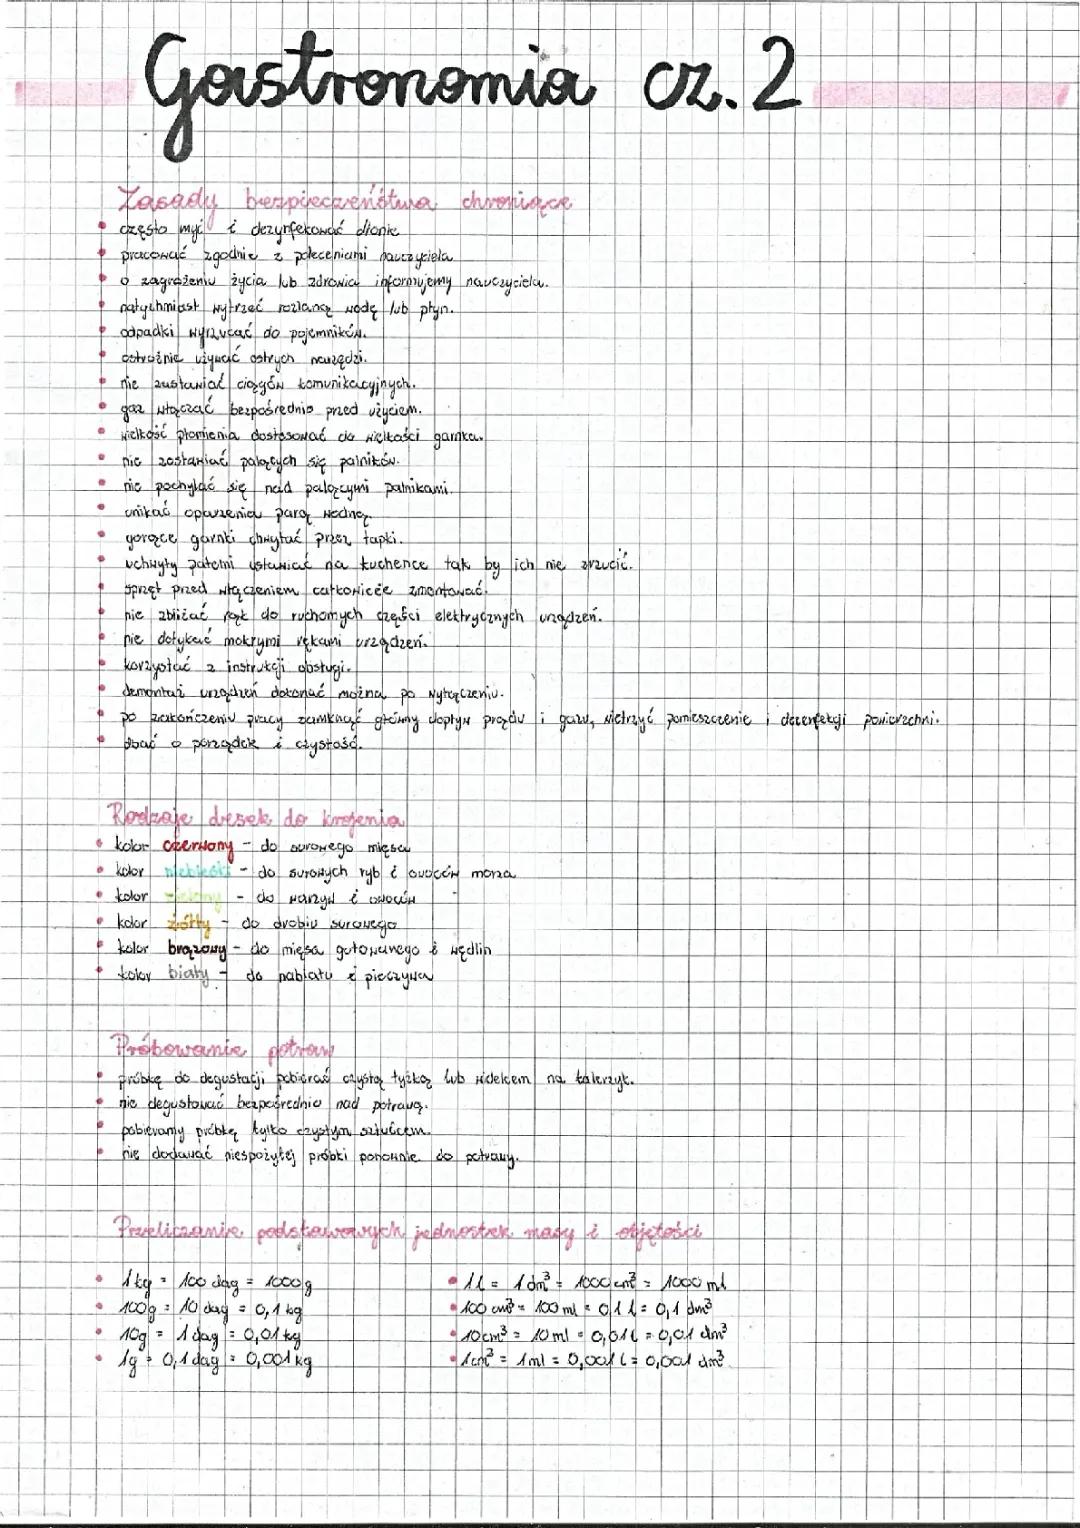 Gastronomia cz. 2
Zasady bezpieczeństwa chroniące
• często myć i dezynfekować dłonie
• pracować zgodnie z poleceniami nauczyciela
• o zagrożeniu życia lub zdrowia informujemy nauczyciela.
• natychmiast wytrzeć rozlaną wodę lub płyn.
• odpadki wyrzucać do pojemników.
• ostrożnie używać ostrych narzędzi.
• nie zastawiać ciągów komunikacyjnych.
• gaz włączać bezpośrednio przed użyciem.
• wielkość płomienia dostosować do wielkości garnka.
• nie zostawiać palących się palników.
• nie pochylać się nad palącymi palnikami.
• unikać oparzenia parą wodną.
• gorące garnki chwytać przez łapki.
• uchwyty patelni ustawiać na kuchence tak by ich nie zrzucić.
• sprzęt przed włączeniem całkowicie zmontować.
• nie zbliżać rąk do ruchomych części elektrycznych urządzeń.
• nie dotykać mokrymi rękami urządzeń.
• korzystać z instrukcji obsługi.
• demontaż urządzeń dokonać można po wyłączeniu.
• po zakończeniu pracy zamknąć główny dopływ prądu i gazu, wietrzyć pomieszczenie i dezenfekcji powierzchni.
• dbać o porządek i czystość.
Rodzaje desek do krojenia
• kolor czerwony - do surowego mięsa
• kolor niebieski - do surowych ryb i owoców morza
• kolor zielony - do warzyw i owoców
• kolor żółty - do drobiu surowego
• kolor brązowy - do mięsa gotowanego i wędlin
• kolor biały - do nabiału i pieczywa
Próbowanie potraw
• próbkę do degustacji pobierać czystą łyżką lub widelcem na talerzyk.
• nie degustować bezpośrednio nad potrawą.
• pobieramy próbkę tylko czystym sztućcem.
• nie dodawać niespożytej próbki ponownie do potrawy.
Przeliczanie podstawowych jednostek masy i objętości
• 1kg = 100 dag = 1000g
• 100g = 10 dag = 0,1 kg
• 10g = 1 dag = 0,01 kg
• 1g = 0,1 dag = 0,001 kg
• 1l = 1 dm³ = 1000 cm³ = 1000 ml
• 100 cm³ = 100 ml = 0,1 l = 0,1 dm³
• 10cm³ = 10 ml = 0,01 l = 0,01 dm³
• 1cm³ = 1ml = 0,001 l = 0,001 dm³